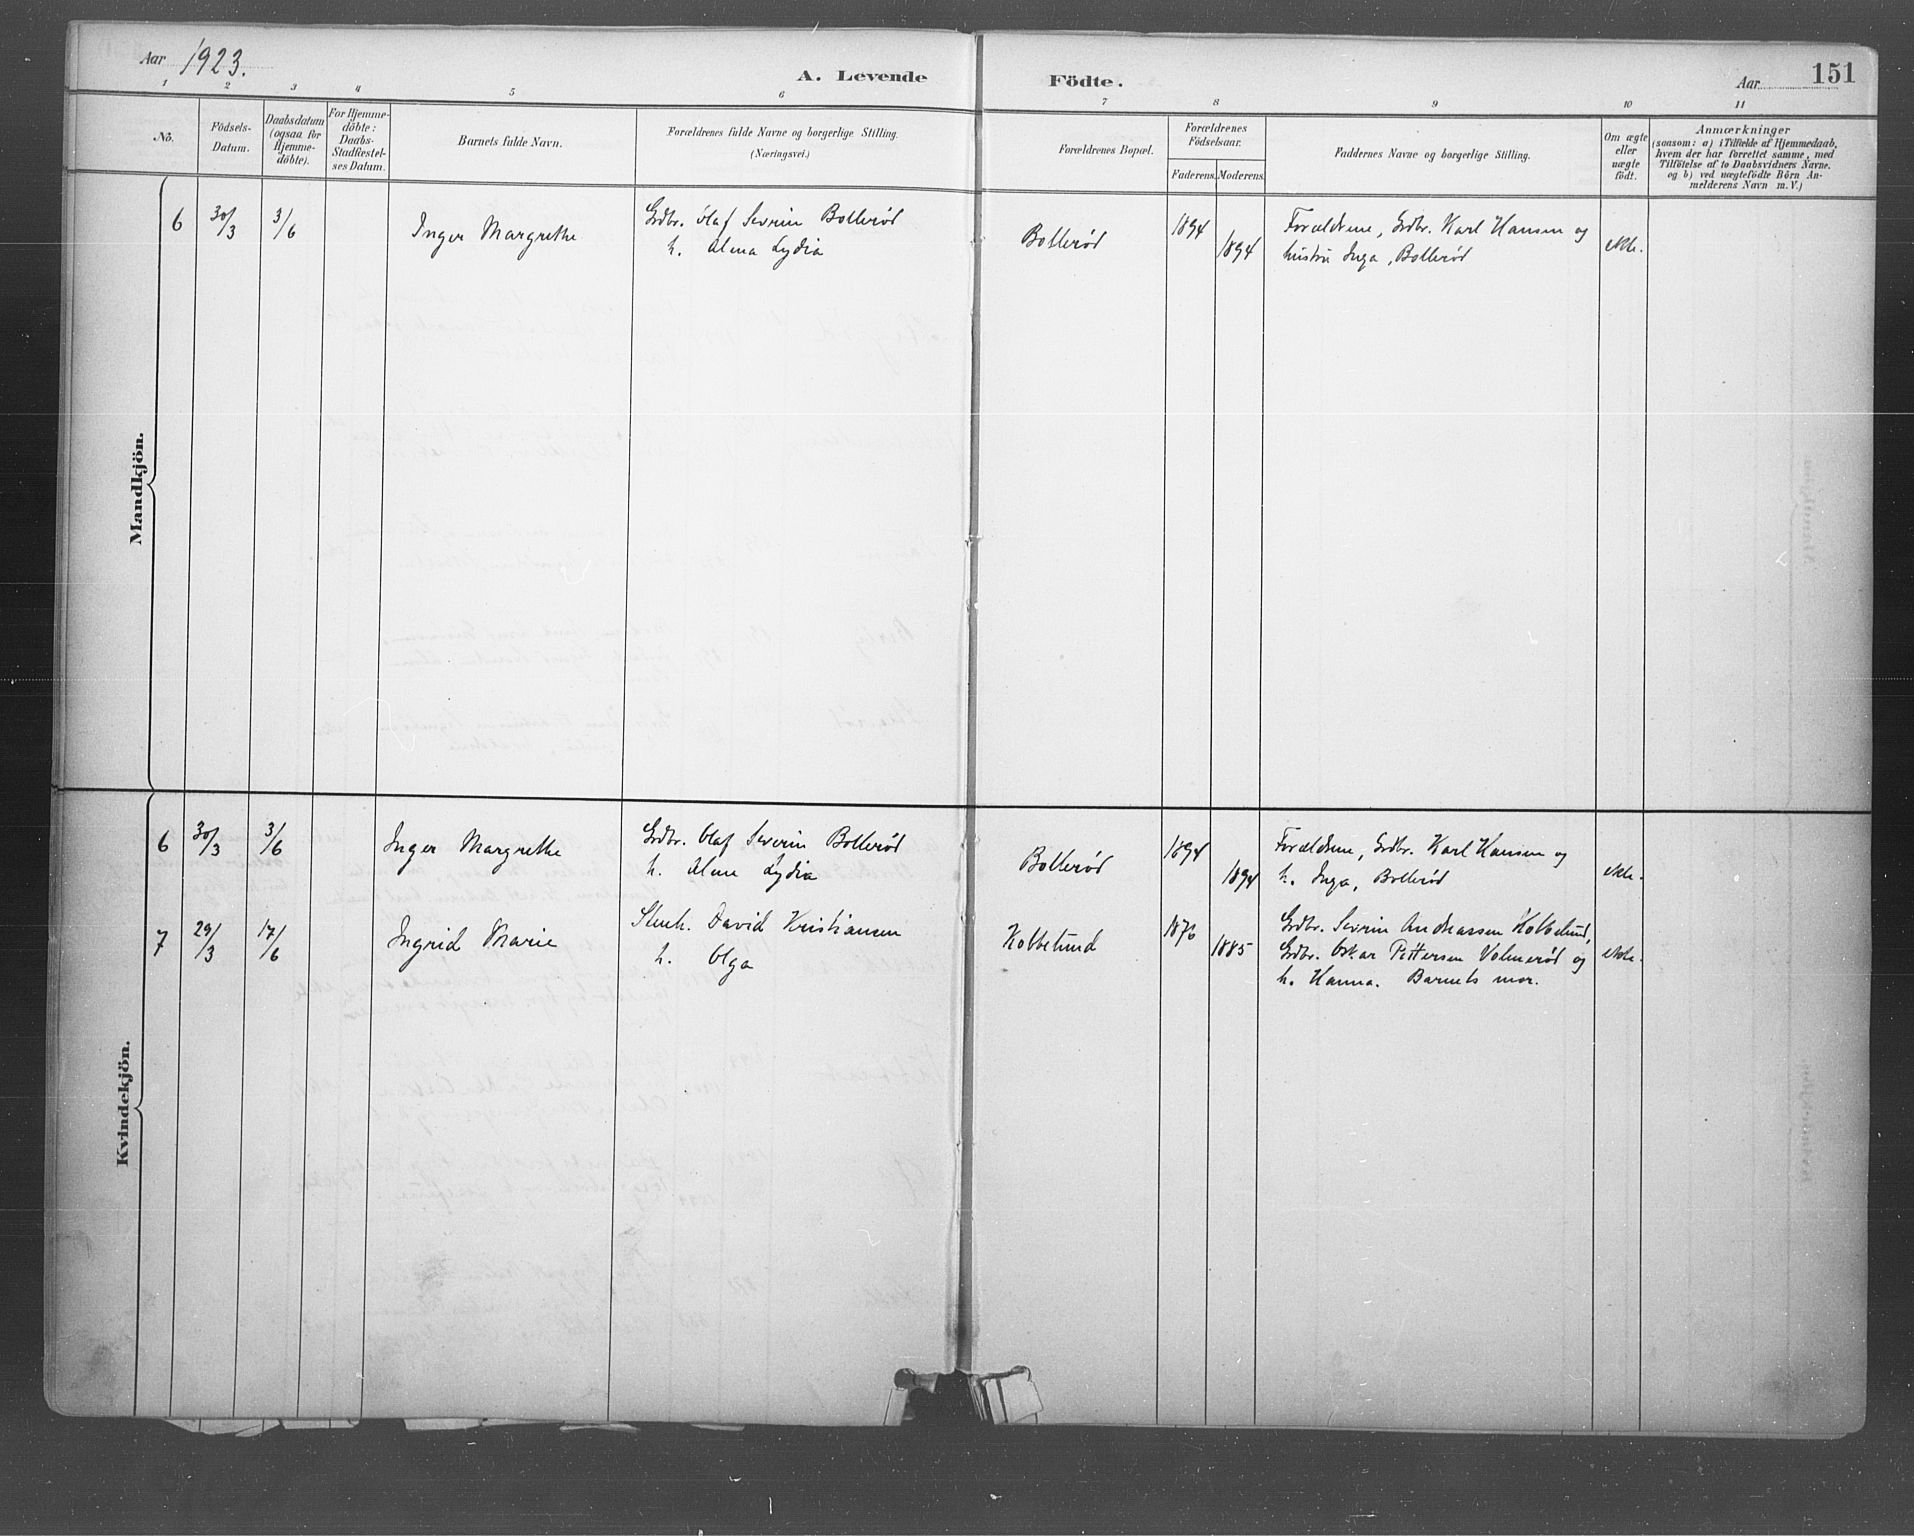 Aar 1923.
A. Levende Födte.
Aar 151
1 2 3 4 5 6 7 8 9 10 11
No.
Födsels-
Datum.
Daabsdatum
(ogsaa for
Hjemme-
döbte).
For Hjemme-
döbte:
Daabs-
Stadfæstel-
ses Datum.
Barnets fulde Navn.
Forældrenes fulde Navne og borgerlige Stilling.
(Næringsvei.)
Forældrenes Bopæl.
Forældrenes
Födselsaar.
Faderens. Moderens.
Faddernes Navne og borgerlige Stilling.
Om ægte
eller
uægte
födt.
Anmærkninger
(saasom: a) i Tilfælde af Hjemmedaab,
hvem der har forrettet samme, med
Tilföielse af to Daabsvidners Navne.
og b) ved uægtefödte Börn An-
melderens Navn m. V.)
Mandkjön.
6 30/3 3/6 Inger Margrethe
Grdbr. Olaf Severin Bollerød
h. Alma Lydia
Bollerød
1894
1894
Forældrene, Grdbr. Karl Hansen og
hustru Inga, Bollerød
ekte.
Kvindekjön.
6 30/3 3/6 Inger Margrethe
Grdbr. Olaf Severin Bollerød
h. Alma Lydia
Bollerød
1894
1894
Forældrene, Grdbr. Karl Hansen og
h. Inga, Bollerød
ekte.
7 29/3 17/6 Ingrid Marie
Stenh. David Kristiansen
h. Olga
Holtelund
1876
1885
Grdbr. Severin Andreassen Holtelund,
Grdbr. Oskar Pettersen Volmerød og
h. Hanna. Barnets mor.
ekte.